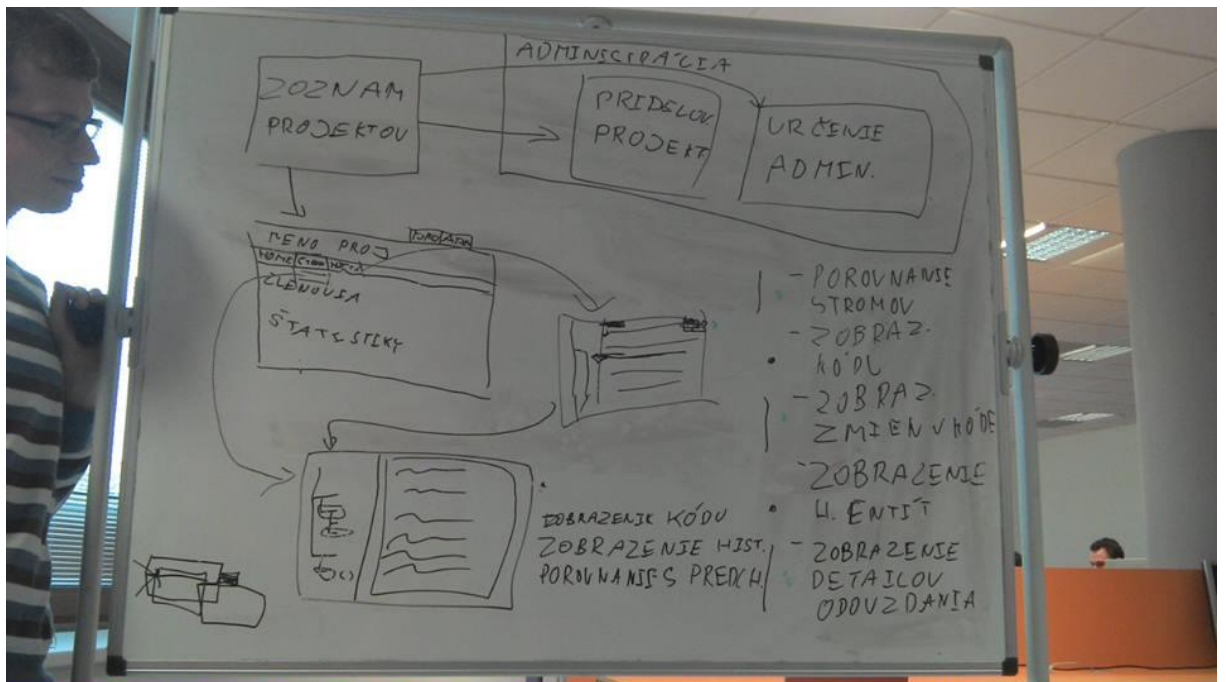 ADMINISTRÁCIA
ZOZNAM
PROJEKTOV
PRIDELOV.
PROJEKT
URČENIE
ADMIN.
MENO PROJ
HOME
ČLENOVIA
ŠTATISTIKY
- POROVNANIE
STROMOV
- ZOBRAZ.
KÓDU
- ZOBRAZ.
ZMIEN V KÓDE
- ZOBRAZENIE
H. ENTÍT
- ZOBRAZENIE
DETAILOV
ODOVZDANIA
ZOBRAZENIE KÓDU
ZOBRAZENIE HIST.
POROVNANIE S PREDCH.